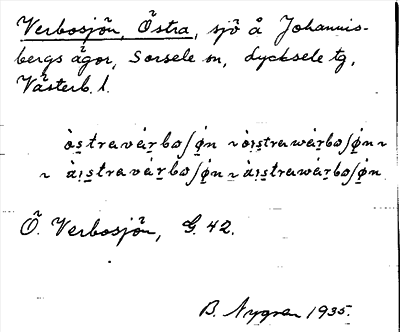 Verbosjön, Östra, sjö å Johannis-
bergs ägor, Sorsele sn, Lycksele tg,
Västerb. l.
òstravárbosʃøn ~ òistrawárbosʃøn ~
~ àistravárbosʃøn ~ àistrawárbosʃøn
Ö. Verbosjön, G. 42.
B. Nygren 1935.